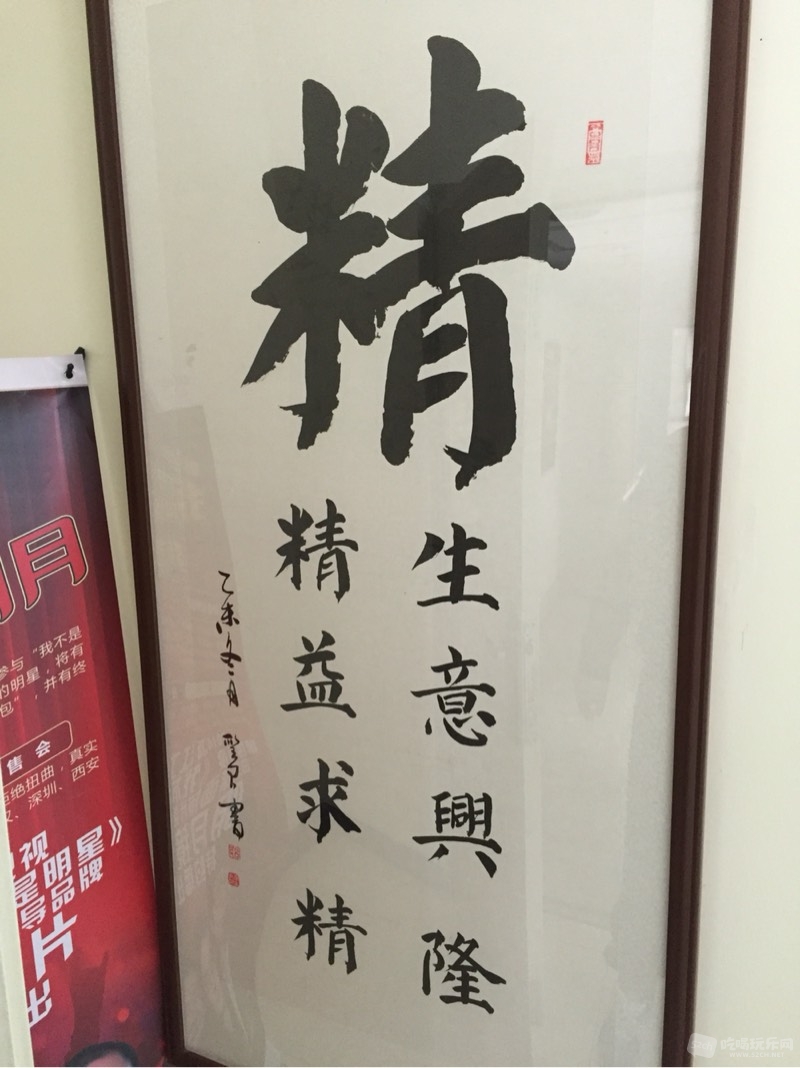 精
生意興隆
精益求精
乙未冬月
書
月
参与“我不是
的明星，将有
包”，并有终
售会
拒绝扭曲，真实
深圳、西安
视
星明星》
品牌
片
出
吃喝玩乐网